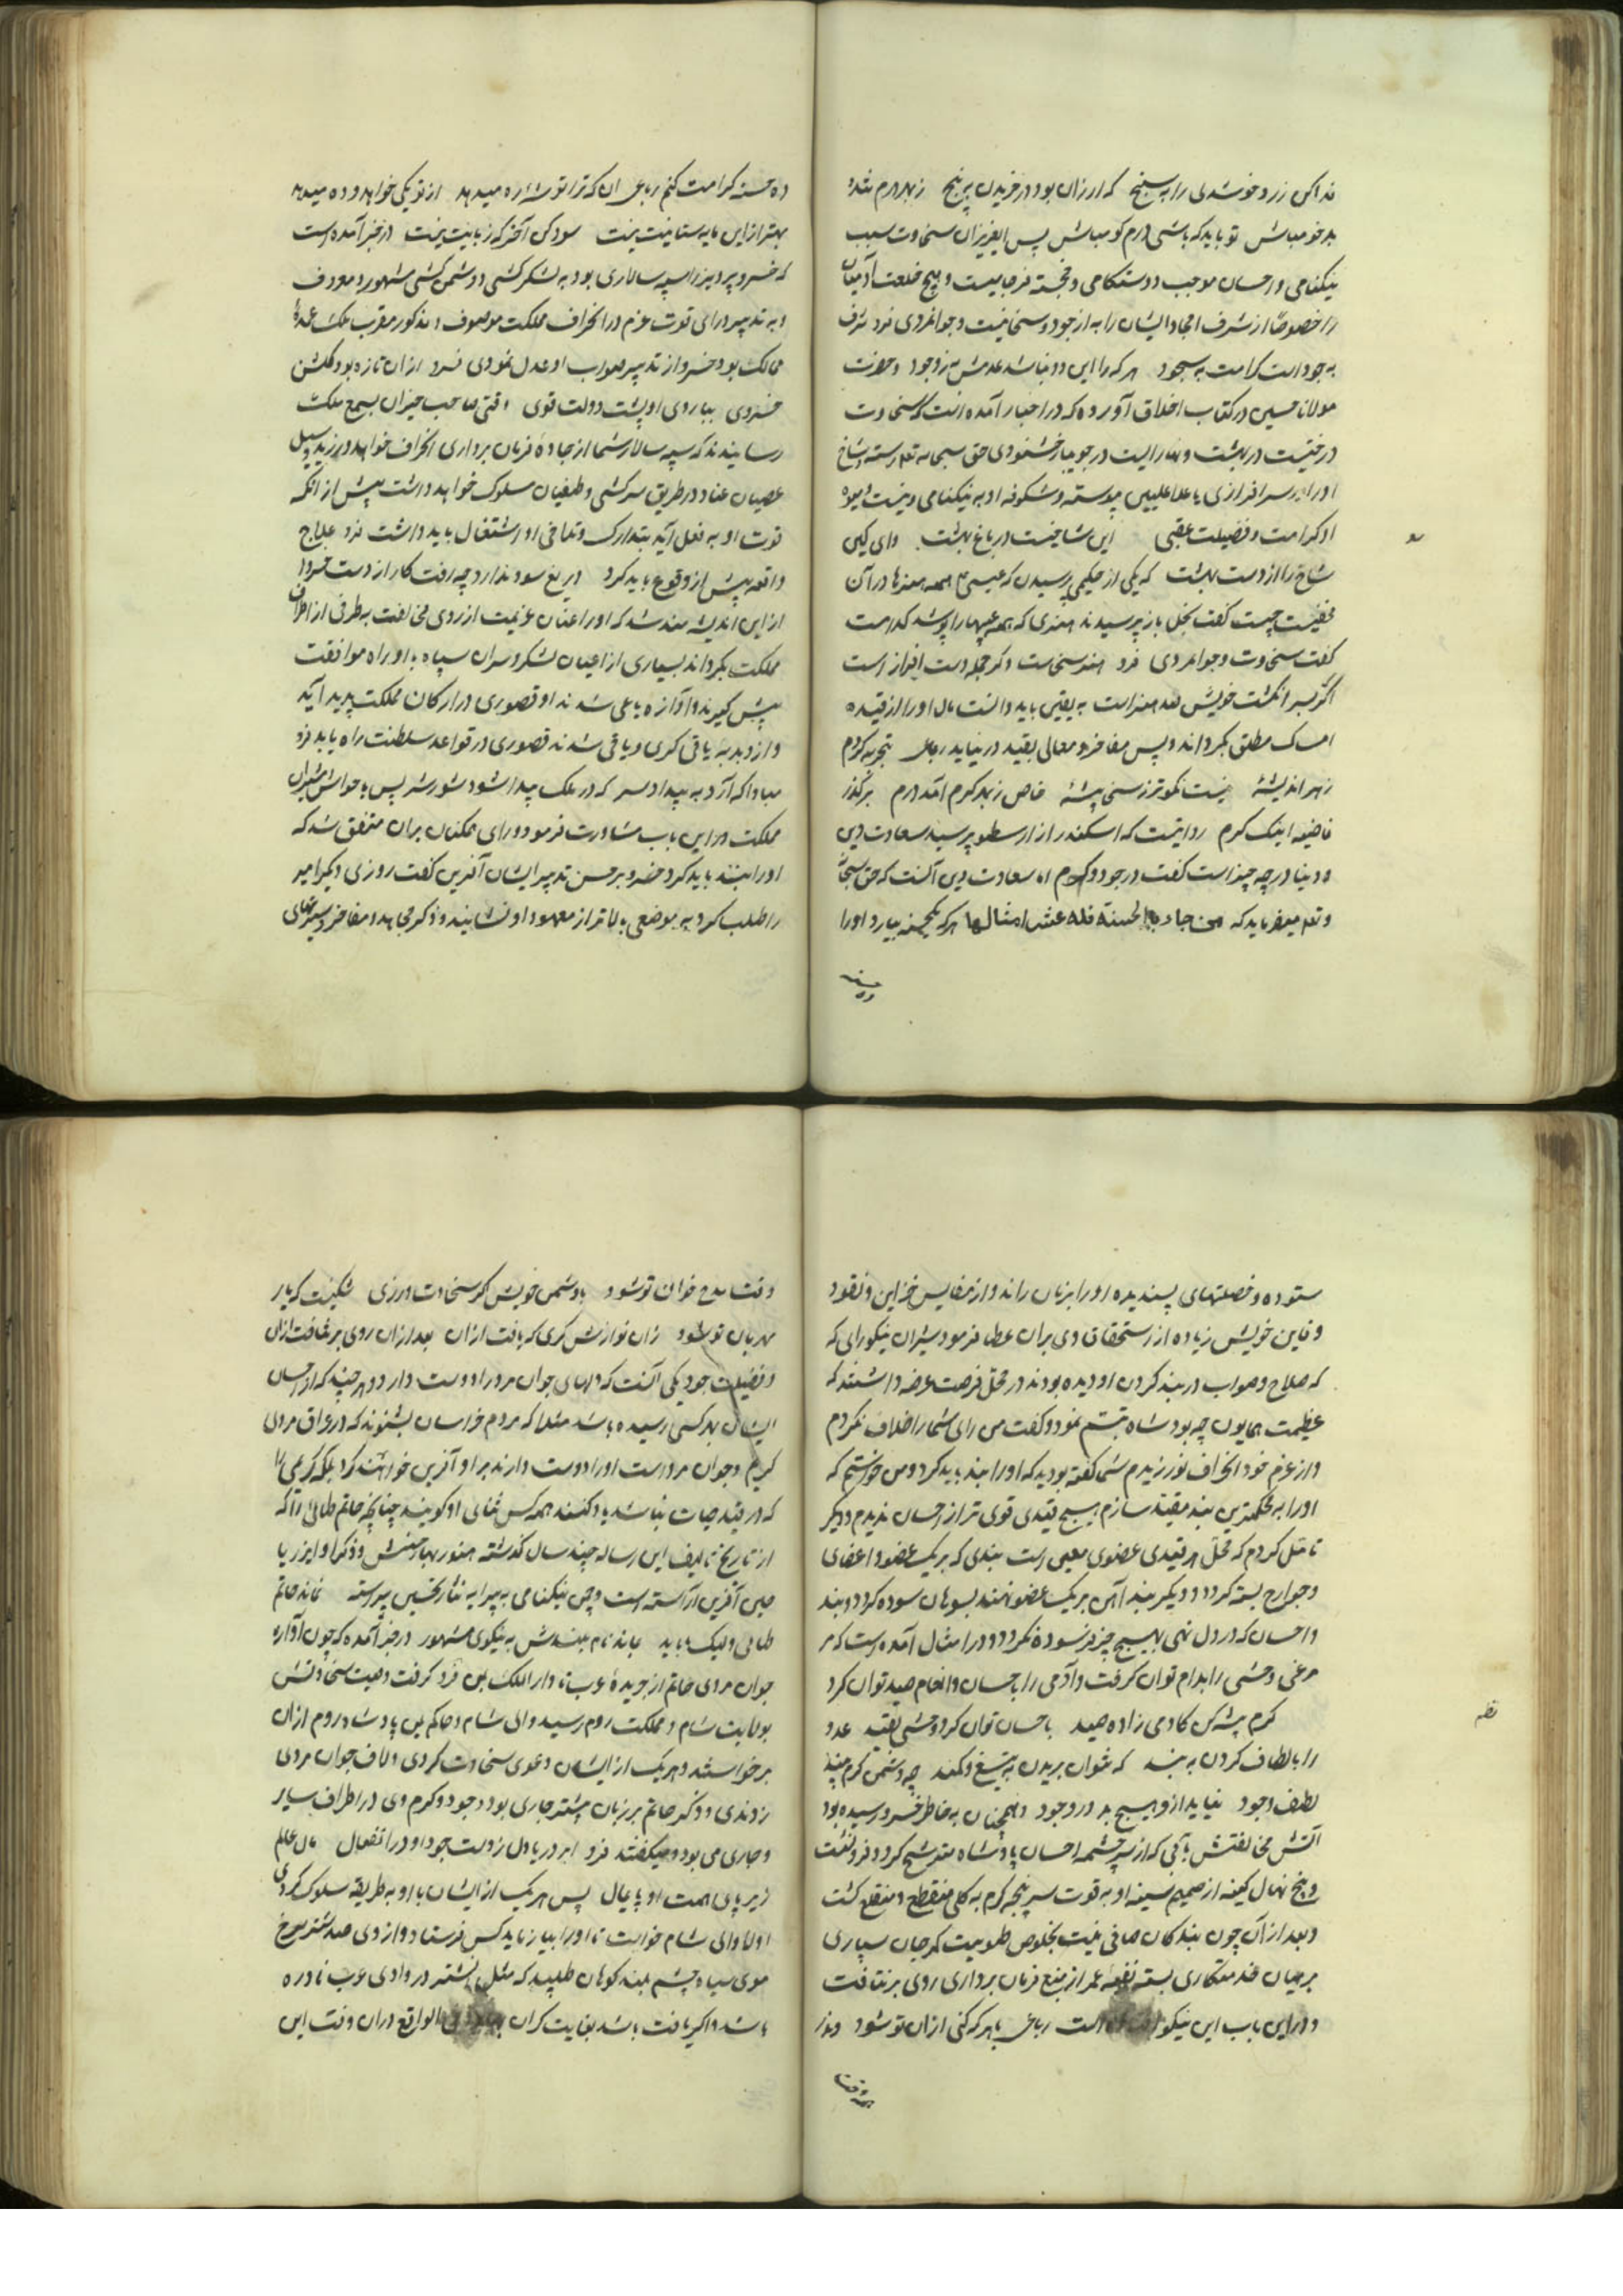 فداکن زر و خوشدلی را بسنج که ارزان بود در خریدن برنج ز بهر درم تند و
بدخو مباش تو باید که باشی درم کو مباش پس ای عزیزان سخاوت سبب
نیکنامی و احسان موجب دوستکامی و خجسته فرجامیست و هیچ خلعت آدمیان
را خصوصاً از شرف امجاد ایشان را به از جود و سخا نیست و جوانمردی فرد شرف
به جود است کرامت به سجود هر که را این دو نباشد عدمش به ز وجود و حضرت
مولانا حسین در کتاب اخلاق آورده که در اخبار آمده است که سخاوت
درختیست در بهشت و نهالیست در جویبار خشنودی حق سبحانه تعالی رسته و شاخ
او را بر سرافرازی با علا علیین پیوسته و شکوفه او به نیکنامی دنیست و میوه
او کرامت و فضیلت عقبی این شاخیست در باغ بهشت وای کین
شاخ را از دست بهشت که یکی از حکیمی پرسیدن که عیبی که همه هنرها در آن
مخفیست چیست گفت بخل باز پرسیدند هنری که همه عیبها را پوشد کدامست
گفت سخاوت و جوانمردی فرد هنر سخاست و دکر جمله دست افزار است
اگر بسر انگشت خویش صد هنر است به یقین باید دانست مال او را از قید
امساک مطلق نگرداند و پس مفاخر و معالی بقید در نیاید رباعی تجربه کردم
ز هر اندیشهٔ نیست نکوتر ز سخی پیشهٔ خاص ز بهر کرم آمد درم برگذر
قافیه اینک کرم روایتست که اسکندر از ارسطو پرسید سعادت دین
و دنیا در چه چیز است گفت در جود و کرم اما سعادت دین آنست که حق سبحانه
و تعالی میفرماید که من جاء بالحسنة فله عشر امثالها هر که یکحسنه بیارد او را
ده حسنه
ده حسنه کرامت کنم رباعی آن که ترا توشهٔ ره میدهد از تو یکی خواهد و ده میدهد
بهتر ازین مایه ستانیت نیست سود کن آخر که زیانیت نیست در خبر آمده است
که خسرو پرویز را سپه سالاری بود به لشکرکشی و دشمن کشی مشهور و معروف
و به تدبیر و رای قوت عزم در انحراف مملکت موصوف و مذکور مقرب ملک عمدهٔ
ممالک بود خسرو از تدبیر صواب او عدل نمودی فرد از آن تازه بود گلشن
خسروی بباروی او پشت دولت قوی وقتی صاحب خبران بسمع ملک
رسانیدند که سپه سالار شما از جادهٔ فرمان برداری انحراف خواهد ورزید و سبیل
عصیان عناد در طریق سرکشی و طغیان سلوک خواهد داشت پیش از آنکه
قوت او به فعل آید بتدارک و تلافی او اشتغال باید داشت فرد علاج
واقعه پیش از وقوع باید کرد دریغ سود ندارد چو رفت کار از دست خسرو
از این اندیشه مند شد که او را عنان عزیمت از روی مخالفت به طرفی از اطراف
مملکت بگرداند بسیاری از اعیان لشکر و سران سپاه با او راه موافقت
پیش گیرند و آوازه یاغی شدند او قصوری در ارکان مملکت پدید آید
و از دبدبه یاقی گری و یاقی شدند قصوری در قواعد سلطنت راه یابد فرد
مبادا که آرد به بیداد سر که در ملک پیدا شود شور و شر پس با خواص مشیران
مملکت در این باب مشاورت فرمود و رای همکنان بران متفق شد که
او را بند باید کرد خسرو بر حسن تدبیر ایشان آفرین گفت روز دیگر امیر
را طلب کرد به موضعی بالاتر از معهود او نشانید و ذکر محامد و مفاخر و سیرتهای
ستوده و خصلتهای پسندیده او را بر زبان راند و از نفایس خزاین و نقود
دفاین خویش زیاده از استحقاق وی بران عطا فرمود مشیران نیکو رای که
که صلاح و صواب در بند کردن او دیده بودند در محل فرصت عرضه داشتند که
عظیمت همایون چه بود شاه تبسم نمود و گفت من رای شما را خلاف نکردم
و از عزم خود انحراف نورزیدم شما گفته بودید که او را بند باید کرد و من خواستم که
او را به محکمترین بند مقید سازم هیچ قیدی قوی تر از احسان ندیدم و دیگر
تأمل کردم که محل هر قیدی عضوی معین است بندی که بر یک عضو و اعضای
و جوارح بسته گردد و دیگر بند آهن بر یک عضو نهند بسوهان سوده گردد و بند
احسان که در دل نهی بهیچ چیز فرسوده نگردد و در امثال آمده است که مر
مرغی وحشی را بدام توان گرفت و آدمی را به احسان و انعام صید توان کرد
نظم
کرم پیشه کن کادمی زاده صید باحسان توان کرد و وحشی بقید عدو
را بالطاف گردن به بند که نتوان بریدن به تیغ و کمند چو دشمن کرم بیند
لطف و جود نیاید ازو هیچ بد در وجود و همچنان به خاطر خسرو رسیده بود
آتش مخالفتش بآبی که از سرچشمه احسان پادشاه مترشح گردد فرو نشست
و بیخ نهال کینه از صمیم سینه او به قوت سر پنجه کرم به کلی منقطع و منقلع گشت
و بعد از آن چون بندگان صافی نیت بخلوص طویت کمر جان سپاری
بر میان خدمتکاری بسته بقیهٔ عمر از منبع فرمان برداری روی برنتافت
و در این باب این نیکو است رباعی با هر که کنی از آن تو شود
وقت
وقت مدح خوان تو شود با دشمن خویش گر سخاوت ورزی شکنیست که یار
مهربان تو شود زان نوازش گری که یافت از آن بعد از آن روی برنتافت از آن
و فضیلت جود یکی آنست که دلهای جوان مرد را دوست دارد و هر چند که از احسان
ایشان بهر کسی رسیده باشد مثلا که مردم خراسان بشنوند که در عراق مردی
کریم و جوان مرد است او را دوست دارند بر او آفرین خواهند کرد بلکه کریمی را
که در قید حیات نباشد یاد کنند همه کس ثنای او گویند چنانچه حاتم طائی را که
از تاریخ تالیف این رساله چند سال گذشته هنوز بهارستانش و ذکر او از ریا
حین آفرین آراسته است و چمن نیکنامی به پیرایه نثار تحسین پیراسته نماند حاتم
طائی ولیک تا باید بماند نام بلندش به نیکوی مشهور در خبر آمده که چون آوازه
جوان مردی حاتم از جزیرهٔ عرب تا دار الملک یمن فرو گرفت وصیت سخاوتش
بولایت شام و مملکت روم رسید والی شام و حاکم یمن پادشاه روم از آن
برخواستند و هر یک از ایشان دعوی سخاوت کردی و لاف جوان مردی
زدندی و ذکر حاتم بر زبان بیشتر جاری بود و جود و کرم وی در اطراف سایر
و جاری می بود و میگفتند فرد ابر دریا دل ز دست جود او در انفعال مال عالم
زیر پای همت او پایمال پس هر یک از ایشان با او به طریقه سلوک کردی
اول والی شام خواست تا او را بیازماید کس فرستاد و از وی صد شتر سرخ
موی سیاه چشم بلند کوهان طلبید که مثل شتر در وادی عرب نادره
باشد و اگر یافت باشد بغایت گران الواقع در آن وقت این